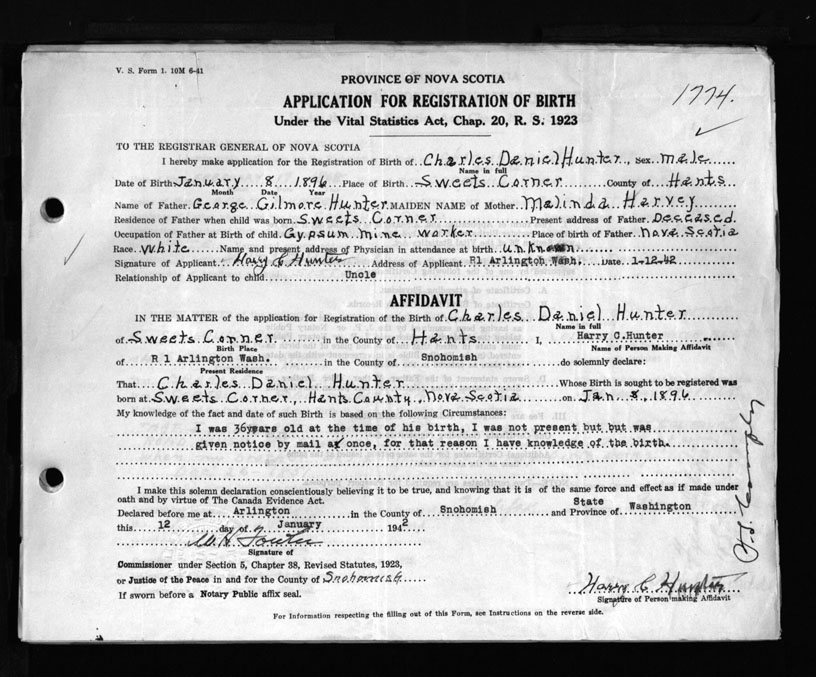 V. S. Form 1. 10M 6-41
PROVINCE OF NOVA SCOTIA
1774.
APPLICATION FOR REGISTRATION OF BIRTH
Under the Vital Statistics Act, Chap. 20, R. S. 1923
TO THE REGISTRAR GENERAL OF NOVA SCOTIA
I hereby make application for the Registration of Birth of Charles Daniel Hunter, Sex male
Name in full
Date of Birth January 8 1896 Place of Birth Sweets Corner County of Hants
Month Date Year
Name of Father George Gilmore Hunter MAIDEN NAME of Mother Malinda Harvey
Residence of Father when child was born Sweets Corner Present address of Father Deceased
Occupation of Father at Birth of child Gypsum mine worker Place of birth of Father Nova Scotia
Race White Name and present address of Physician in attendance at birth unknown
Signature of Applicant Harry C Hunter Address of Applicant R1 Arlington Wash. Date 1-12-42
Relationship of Applicant to child Uncle
AFFIDAVIT
IN THE MATTER of the application for Registration of the Birth of Charles Daniel Hunter
Name in full
of Sweets Corner in the County of Hants I, Harry C. Hunter
Birth Place Name of Person Making Affidavit
of R 1 Arlington Wash. in the County of Snohomish do solemnly declare:
Present Residence
That Charles Daniel Hunter Whose Birth is sought to be registered was
born at Sweets Corner, Hants County, Nova Scotia on Jan 8, 1896
My knowledge of the fact and date of such Birth is based on the following Circumstances:
I was 36years old at the time of his birth, I was not present but but was
given notice by mail at once, for that reason I have knowledge of the birth.
I make this solemn declaration conscientiously believing it to be true, and knowing that it is of the same force and effect as if made under
oath and by virtue of The Canada Evidence Act.
State
Declared before me at Arlington in the County of Snohomish and Province of Washington
this 12 day of January 1942
Signature of
Commissioner under Section 5, Chapter 38, Revised Statutes, 1923,
or Justice of the Peace in and for the County of Snohomish
If sworn before a Notary Public affix seal.
Harry C Hunter
Signature of Person making Affidavit
For Information respecting the filling out of this Form, see Instructions on the reverse side.